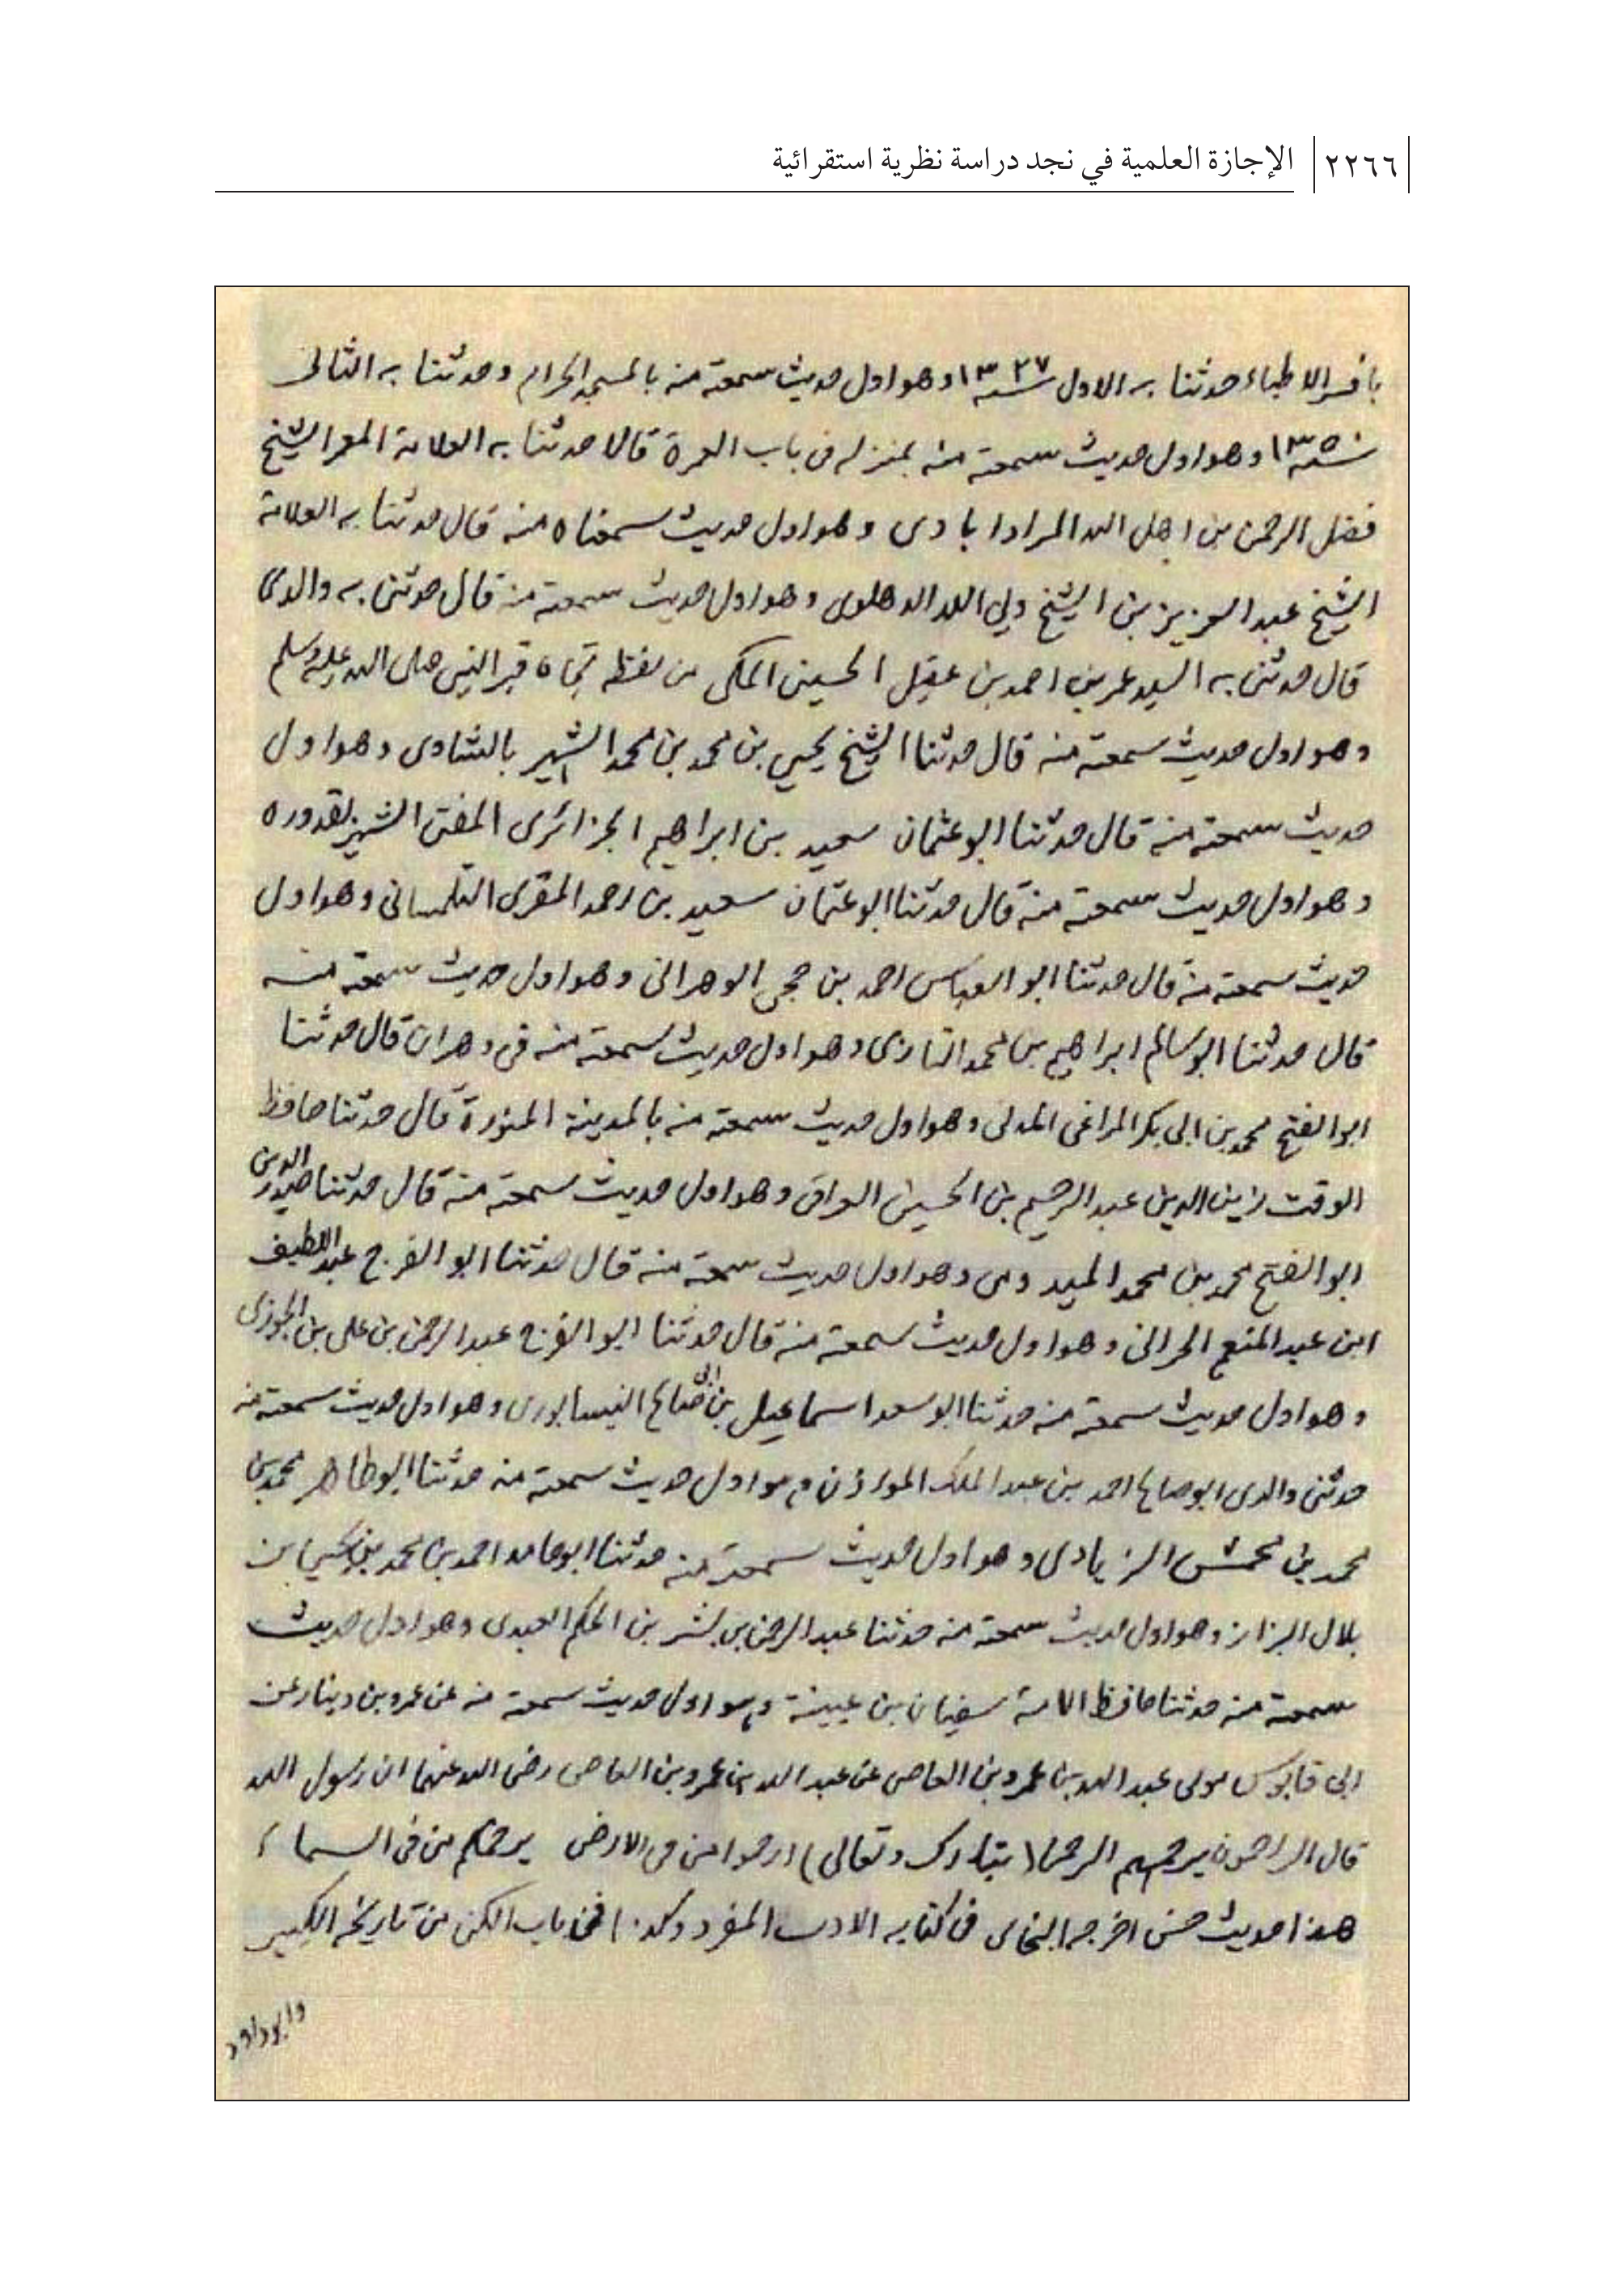 ٢٢٦٦ الإجازة العلمية في نجد دراسة نظرية استقرائية
الاطباء حدثنا به الاول سنة ١٣٢٧ وهو اول حديث سمعته منه بالمسجد الحرام وحدثنا به الثانى
سنة ١٣٥ وهو اول حديث سمعته منه بمنزله فى باب العمرة قالا حدثنا به العلامة المعمر الشيخ
فضل الرحمن بن اهل الله المرادابادى وهو اول حديث سمعناه منه قال حدثنا به العلامة
الشيخ عبد العزيز بن الشيخ ولي الله الدهلوى وهو اول حديث سمعته منه قال حدثنى به والدى
قال حدثنى به السيد عمر بن احمد بن عقيل الحسينى المكى من لفظه تجاه قبر النبى صلى الله عليه وسلم
وهو اول حديث سمعته منه قال حدثنا الشيخ يحيى بن محمد بن محمد الشهير بالشاوى وهو اول
حديث سمعته منه قال حدثنا ابو عثمان سعيد بن ابراهيم الجزائرى المفتى الشهير بقدوره
وهو اول حديث سمعته منه قال حدثنا ابو عثمان سعيد بن احمد المقرى التلمسانى وهو اول
حديث سمعته منه قال حدثنا ابو العباس احمد بن حجى الوهرانى وهو اول حديث سمعته منه
قال حدثنا ابو سالم ابراهيم بن محمد التازى وهو اول حديث سمعته منه فى وهران قال حدثنا
ابو الفتح محمد بن ابى بكر المراغى المدنى وهو اول حديث سمعته منه بالمدينة المنورة قال حدثنا حافظ
الوقت زين الدين عبد الرحيم بن الحسين العراقى وهو اول حديث سمعته منه قال حدثنا صدر الدين
ابو الفتح محمد بن محمد الميدومى وهو اول حديث سمعته منه قال حدثنا ابو الفرج عبد اللطيف
ابن عبد المنعم الحرانى وهو اول حديث سمعته منه قال حدثنا ابو الفرج عبد الرحمن بن على بن الجوزى
وهو اول حديث سمعته منه حدثنا ابو سعد اسماعيل بن ابى صالح النيسابورى وهو اول حديث سمعته منه
حدثنى والدى ابو صالح احمد بن عبد الملك المؤذن وهو اول حديث سمعته منه حدثنا ابو طاهر محمد بن
محمد بن محمش الزيادى وهو اول حديث سمعته منه حدثنا ابو حامد احمد بن محمد بن يحيى بن
بلال البزاز وهو اول حديث سمعته منه حدثنا عبد الرحمن بن بشر بن الحكم العبدى وهو اول حديث
سمعته منه حدثنا حافظ الامة سفيان بن عيينة وهو اول حديث سمعته منه عن عمرو بن دينار عن
ابى قابوس مولى عبد الله بن عمرو بن العاصى عن عبد الله بن عمرو بن العاصى رضى الله عنهما ان رسول الله
قال الراحمون يرحمهم الرحمن (تبارك وتعالى) ارحموا من فى الارض يرحمكم من فى السماء
هذا حديث حسن اخرجه البخارى فى كتابه الادب المفرد وكذا فى باب الكنى من تاريخه الكبير
وابو داود